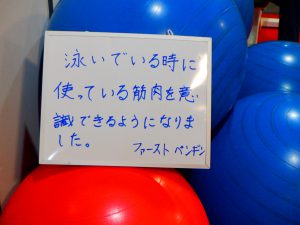 泳いでいる時に
使っている筋肉を意
識できるようになりま
した。
ファースト ペンギン